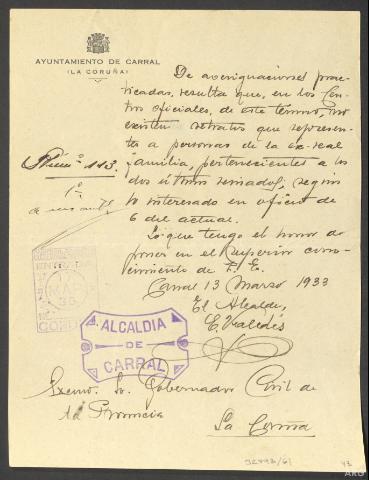 AYUNTAMIENTO DE CARRAL
(LA CORUÑA)
De averiguaciones prac-
ticadas, resulta que, en los Cen-
tros oficiales, de este término, no
existen retratos que represen-
ten a personas de la ex-real
familia, pertenecientes a los
dos últimos reinados, según
lo interesado en oficio de
6 del actual.
Lo que tengo el honor de
poner en el superior cono-
cimiento de V. E.
Carral 13 Marzo 1933
El Alcalde,
Núm.º 113.
1º
ALCALDIA
DE
CARRAL
Excmo. Sr. Gobernador Civil de
la Provincia
La Coruña